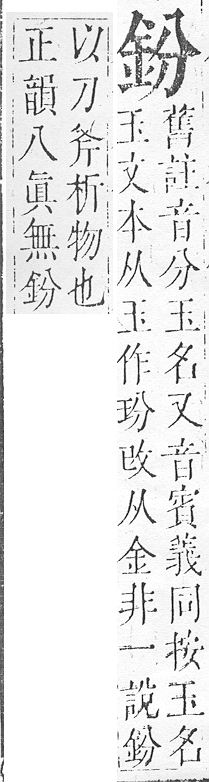 鈖
舊註音分玉名又音賓義同按玉名
玉文本从玉作玢改从金非一說鈖
以刀斧析物也
正韻八眞無鈖